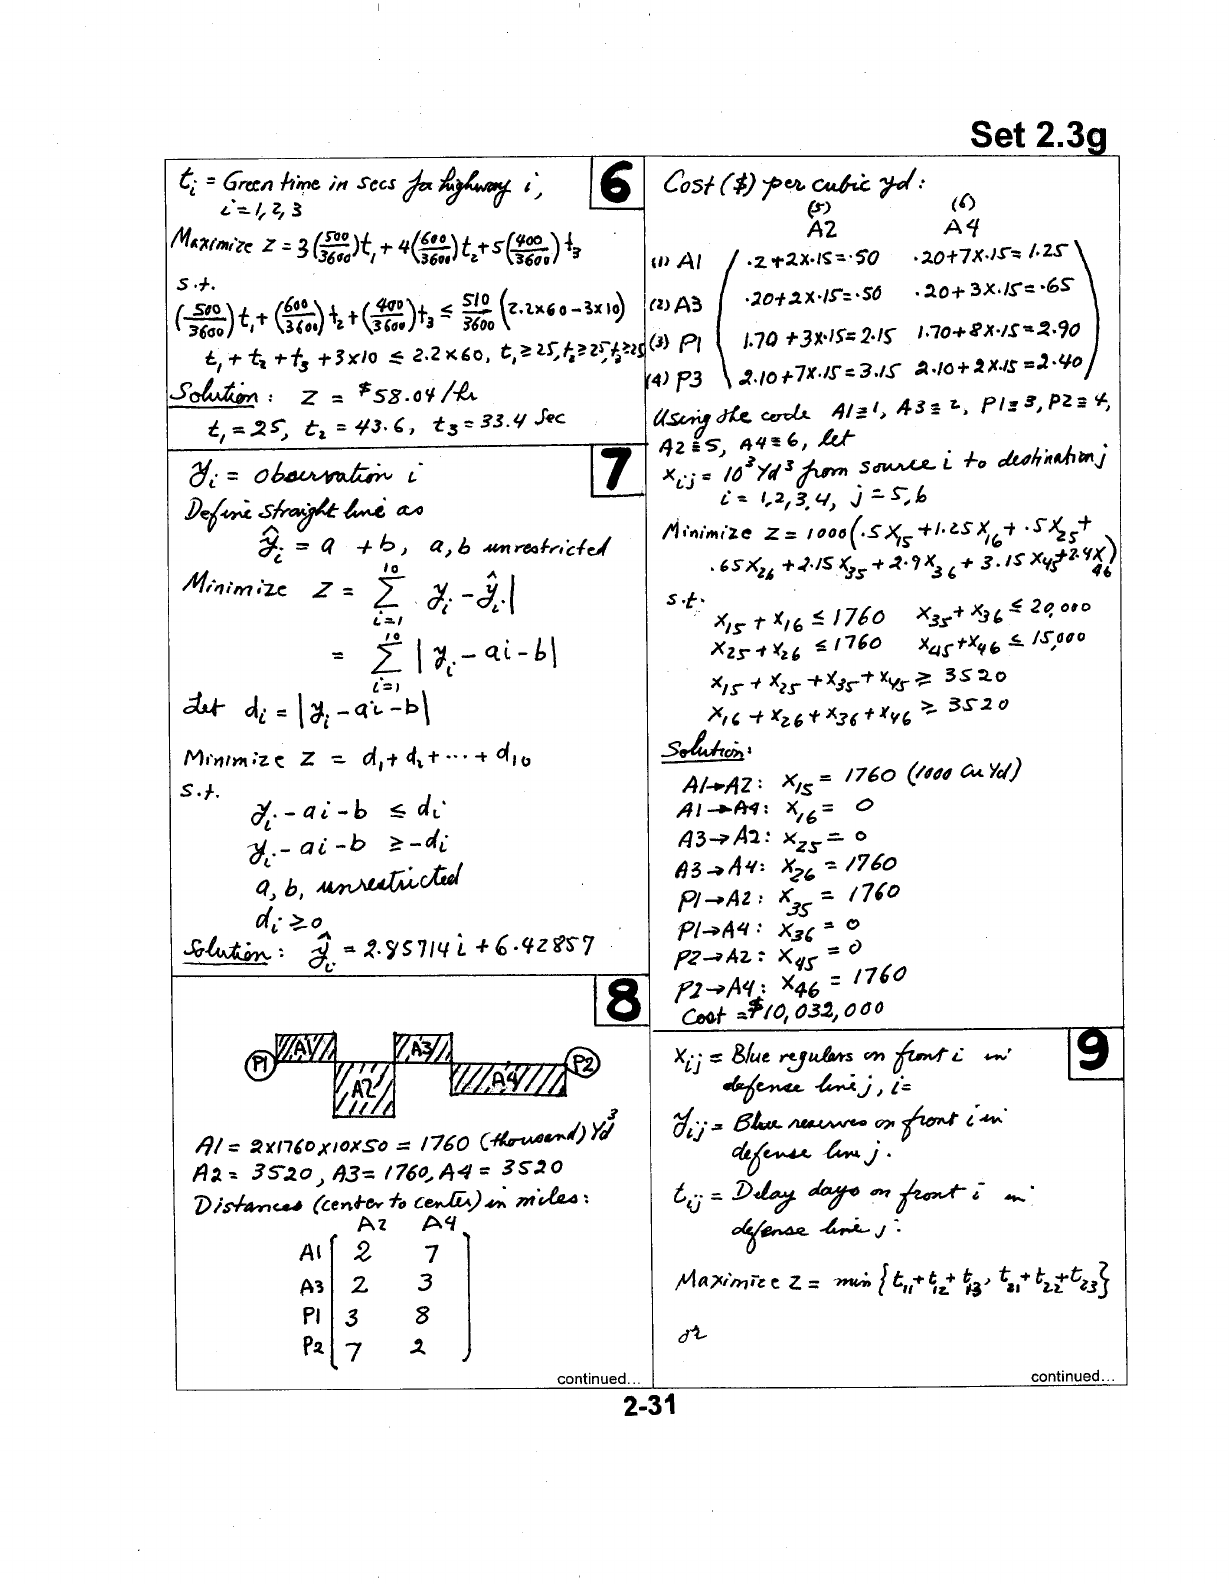 Set 2.3g
6
tᵢ = Green time in secs for highway i,
i = 1, 2, 3
Maximize Z = 3(500/3600)t₁ + 4(600/3600)t₂ + 5(400/3600)t₃
s.t.
(500/3600)t₁ + (600/3600)t₂ + (400/3600)t₃ ≤ 510/3600 (2.2x60 - 3x10)
t₁ + t₂ + t₃ + 3x10 ≤ 2.2x60, t₁ ≥ 25, t₂ ≥ 25, t₃ ≥ 25
Solution: Z = $58.04/hr
t₁ = 25, t₂ = 43.6, t₃ = 33.4 Sec
7
yᵢ = observation i
Define straight line as
ŷᵢ = a + b, a, b unrestricted
Minimize Z = Σ yᵢ - ŷᵢ| (i=1, 10)
= Σ |yᵢ - ai - b| (i=1, 10)
Let dᵢ = |yᵢ - ai - b|
Minimize Z = d₁ + d₂ + ··· + d₁₀
s.t.
yᵢ - ai - b ≤ dᵢ
yᵢ - ai - b ≥ -dᵢ
a, b, unrestricted
dᵢ ≥ 0
Solution: ŷᵢ = 2.85714 i + 6.42857
8
P1 A1 A2 A3 A4 P2
A1 = 2x1760x10x50 = 1760 (thousand) Yd³
A2 = 3520, A3 = 1760, A4 = 3520
Distances (center to center) in miles:
A2 A4
A1 2 7
A3 2 3
P1 3 8
P2 7 2
continued...
Cost ($) per cubic yd:
(5) (6)
A2 A4
(1) A1 .2+2x.15=.50 .20+7x.15=1.25
(2) A3 .20+2x.15=.50 .20+3x.15=.65
(3) P1 1.70+3x.15=2.15 1.70+8x.15=2.90
(4) P3 2.10+7x.15=3.15 2.10+2x.15=2.40
Using the code A1≡1, A3≡2, P1≡3, P2≡4,
A2≡5, A4≡6, let
xᵢⱼ = 10³ Yd³ from source i to destination j
i = 1,2,3,4, j = 5,6
Minimize Z = 1000(.5X₁₅ + 1.25X₁₆ + .5X₂₅ +
.65X₂₆ + 2.15X₃₅ + 2.9X₃₆ + 3.15X₄₅ + 2.4X₄₆)
s.t.
X₁₅ + X₁₆ ≤ 1760 X₃₅ + X₃₆ ≤ 20,000
X₂₅ + X₂₆ ≤ 1760 X₄₅ + X₄₆ ≤ 15,000
X₁₅ + X₂₅ + X₃₅ + X₄₅ ≥ 3520
X₁₆ + X₂₆ + X₃₆ + X₄₆ ≥ 3520
Solution:
A1→A2: X₁₅ = 1760 (1000 Cu Yd)
A1→A4: X₁₆ = 0
A3→A2: X₂₅ = 0
A3→A4: X₂₆ = 1760
P1→A2: X₃₅ = 1760
P1→A4: X₃₆ = 0
P2→A2: X₄₅ = 0
P2→A4: X₄₆ = 1760
Cost = $10,032,000
9
Xᵢⱼ = Blue regulars on front i in
defense line j, i=
yᵢⱼ = Blue reserves on front i in
defense line j.
tᵢⱼ = Delay days on front i in
defense line j.
Maximize Z = min {t₁₁+t₁₂+t₁₃, t₂₁+t₂₂+t₂₃}
or
continued...
2-31